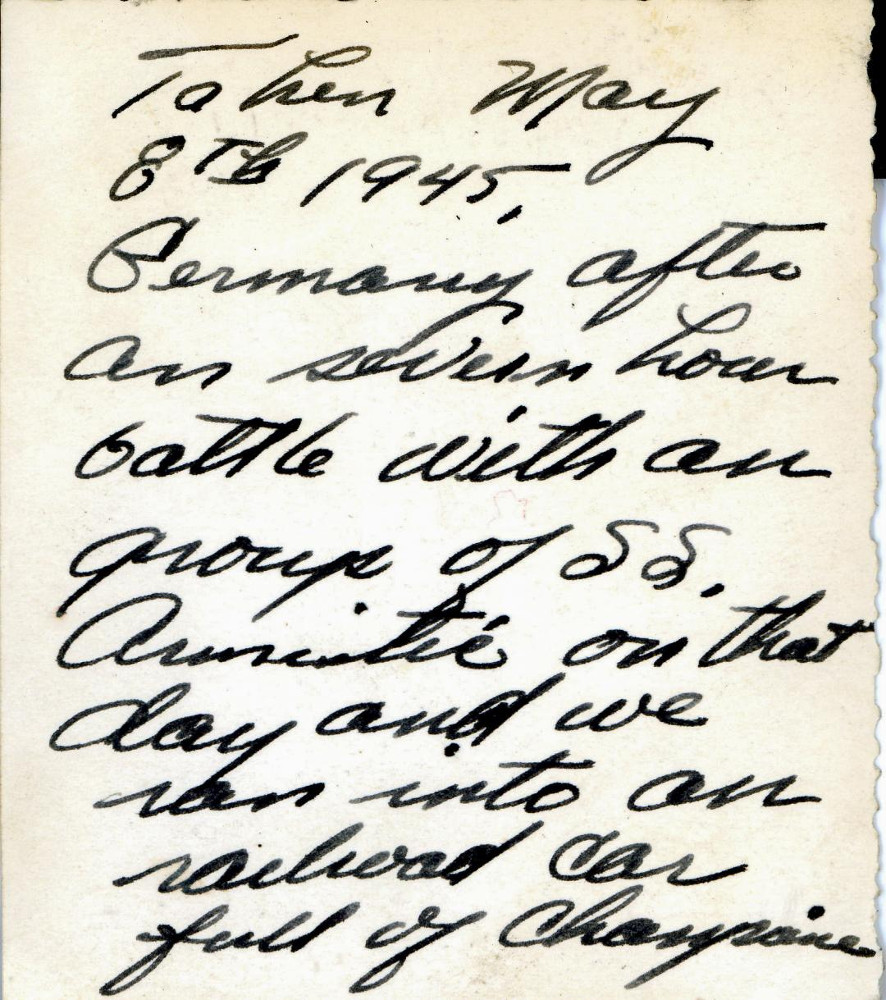 Taken May
8th 1945,
Germany after
an seven hour
battle with an
group of SS.
Armistic on that
day and we
ran into an
railroad car
full of Champaine